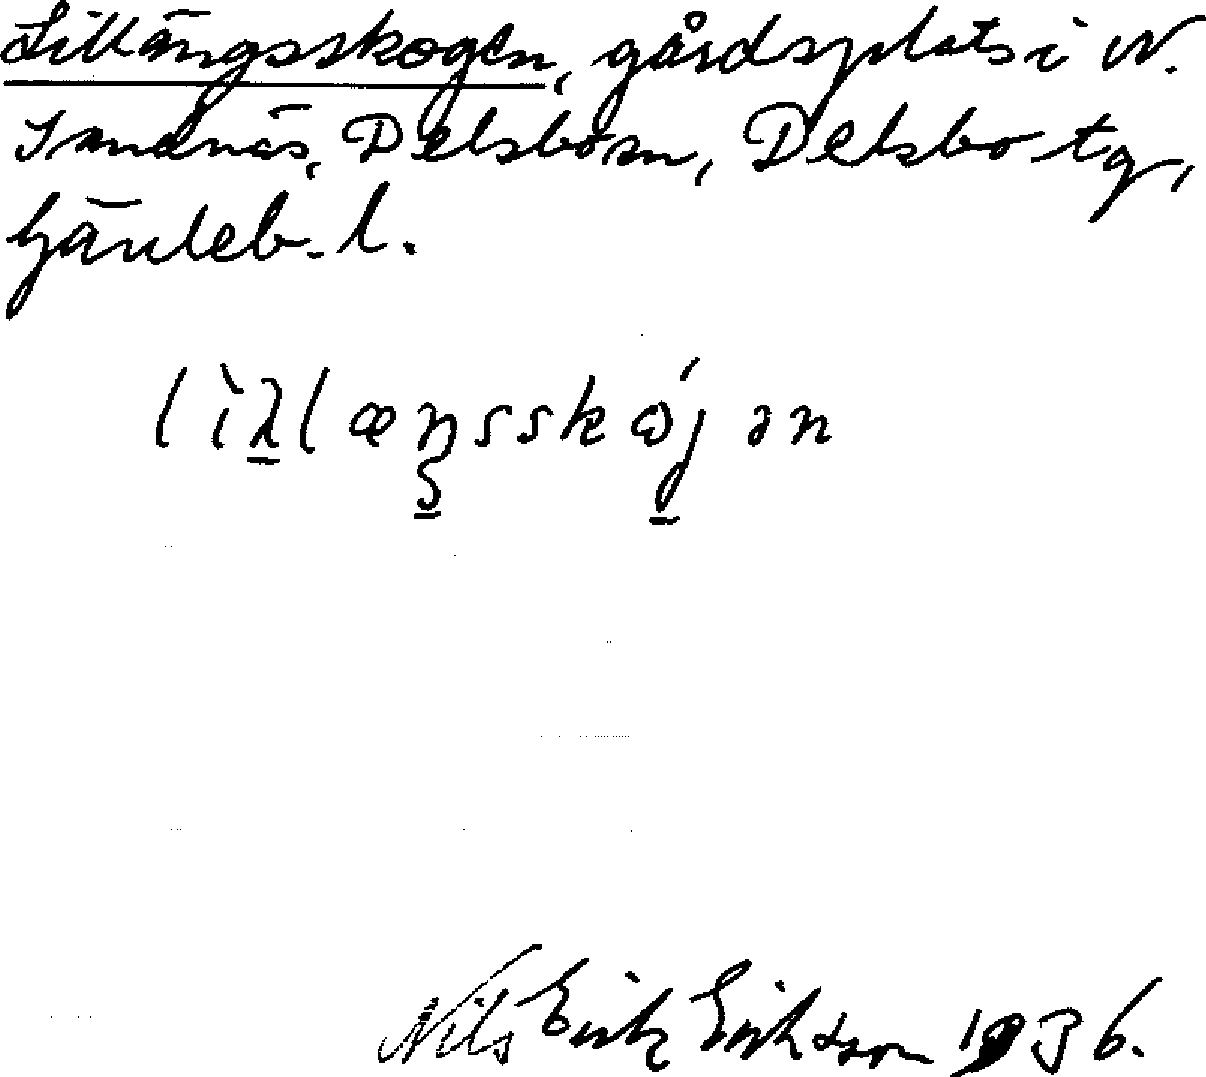 Lillängsskogen, gårdsplats i N.
Sannäs, Delsbo sn, Delsbo tg,
Gävleb. l.
Nils Erik Eriksson 1936.